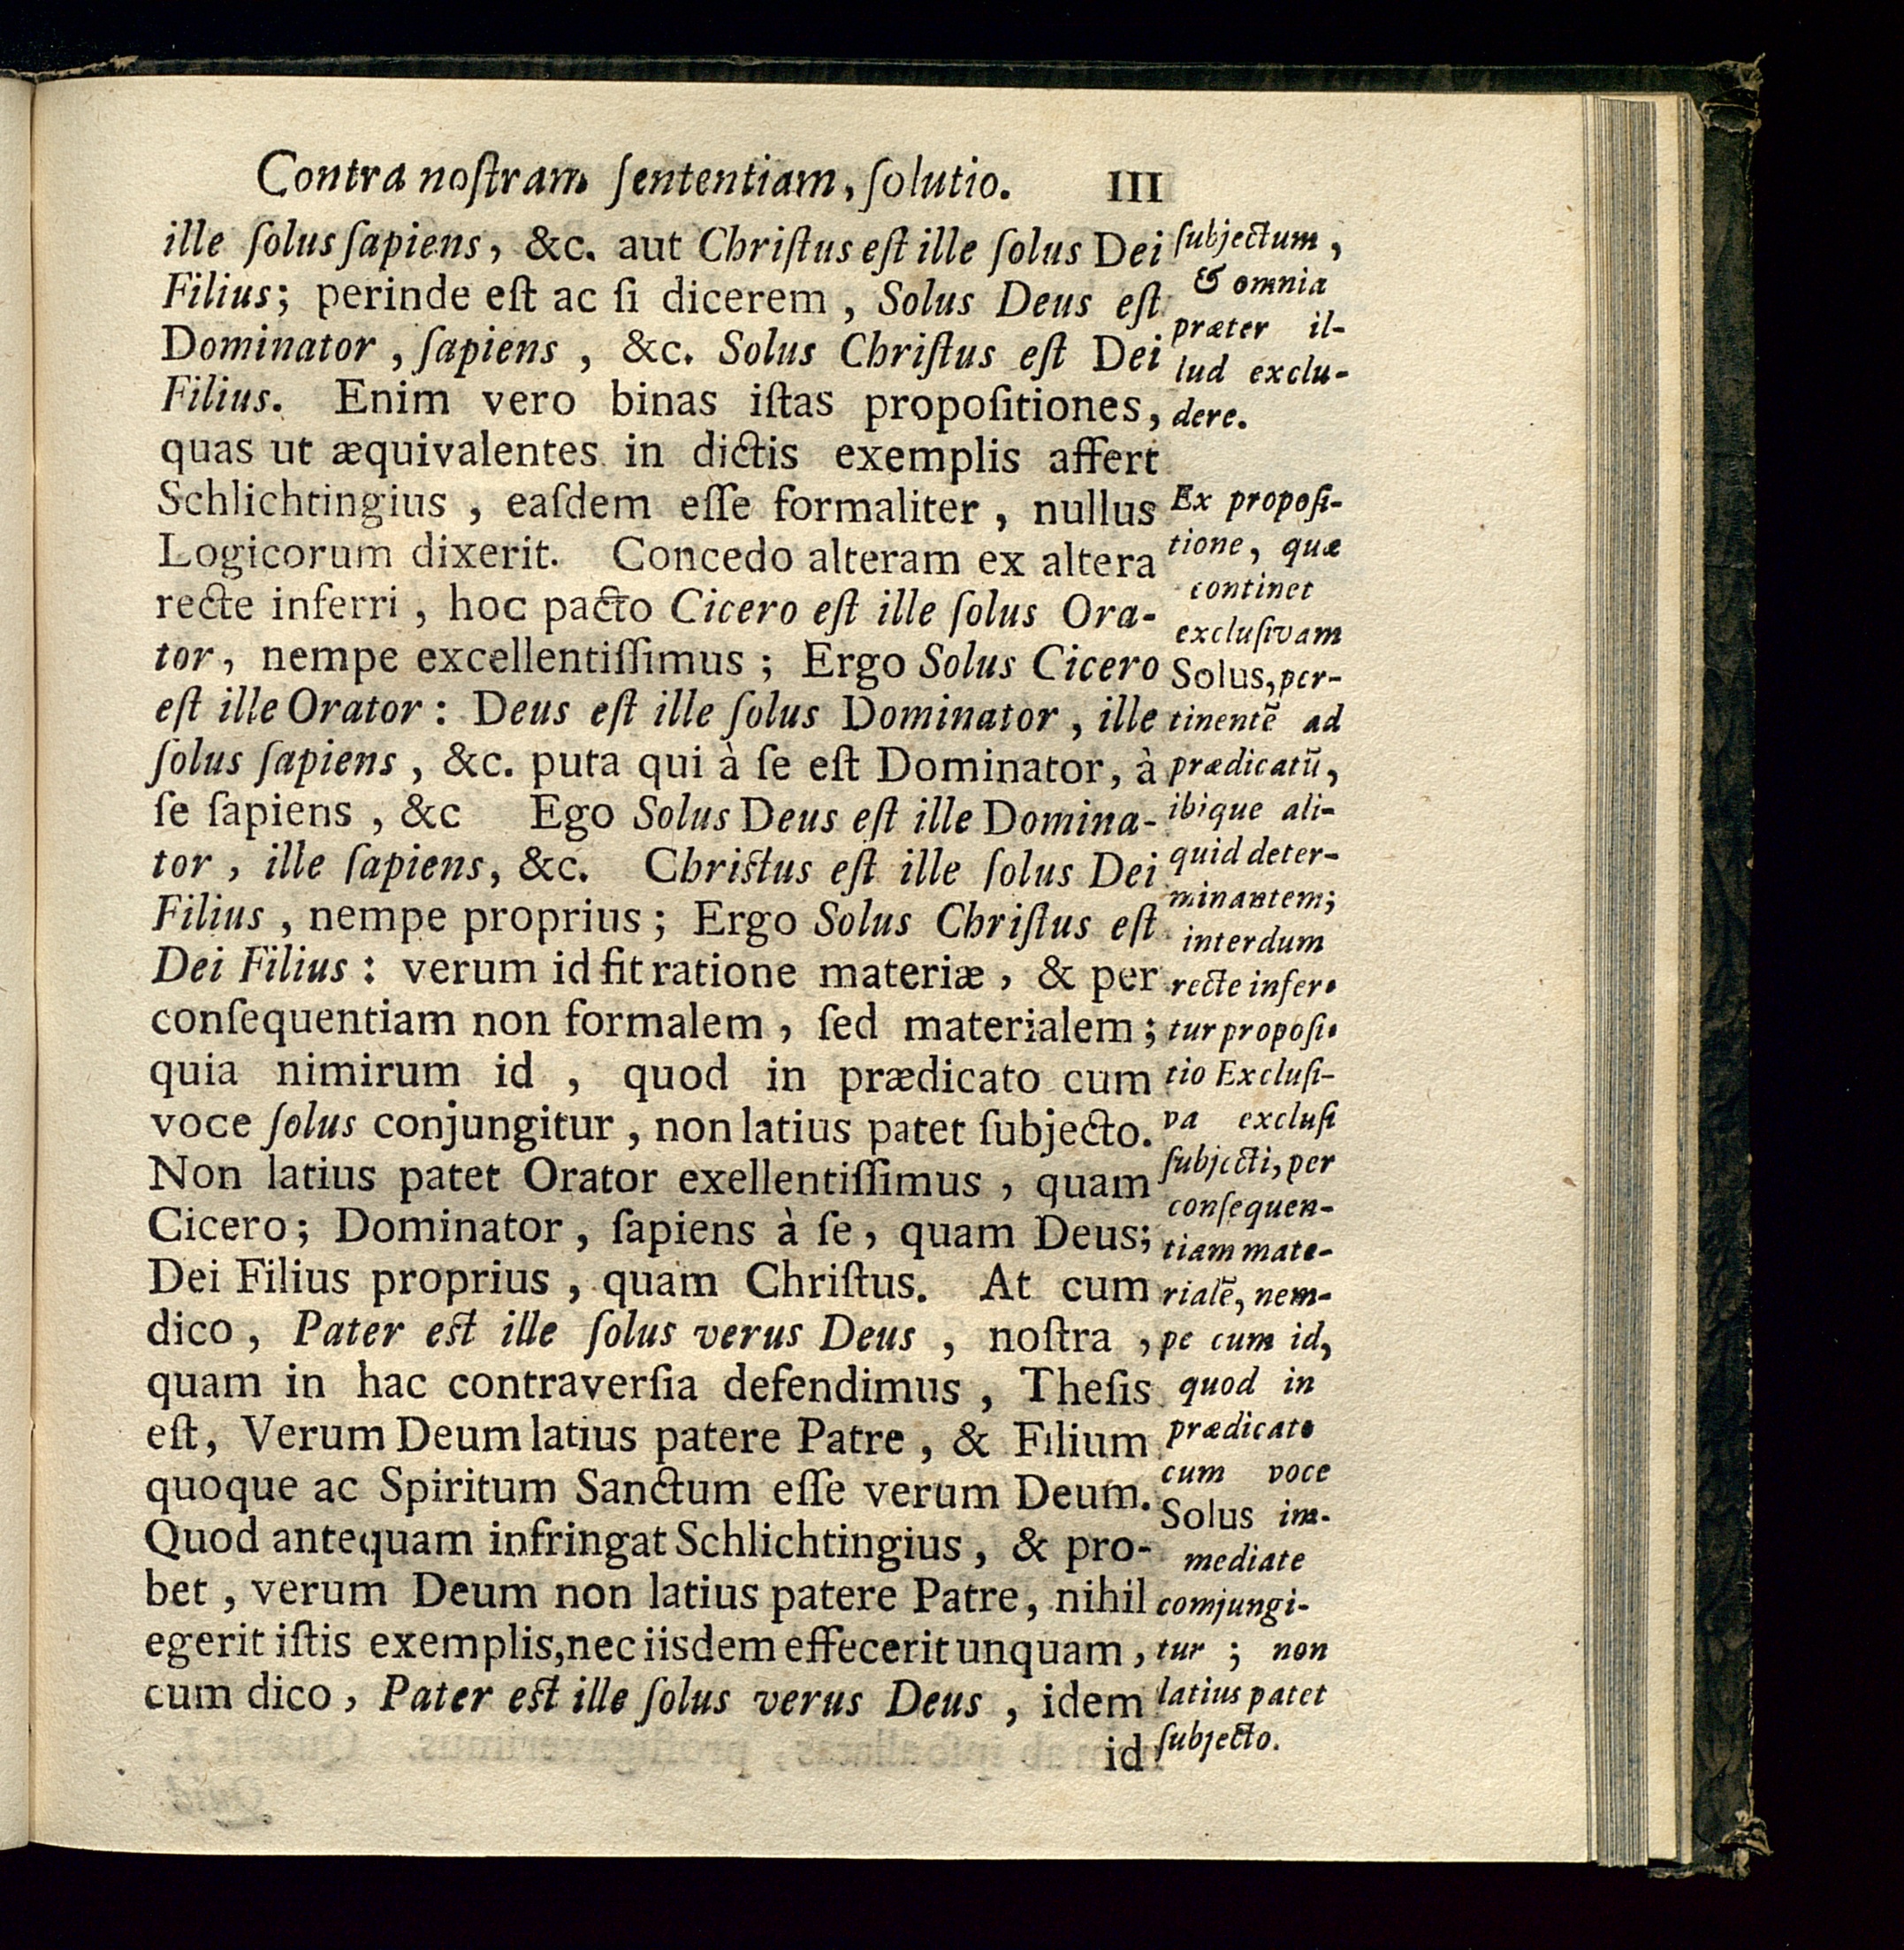 Contra noſtram ſententiam, ſolutio. III
ille ſolus ſapiens, &c. aut Chriſtus eſt ille ſolus Dei
Filius; perinde eſt ac ſi dicerem, Solus Deus eſt
Dominator, ſapiens, &c. Solus Chriſtus eſt Dei
Filius. Enim vero binas iſtas propoſitiones,
quas ut æquivalentes in dictis exemplis affert
Schlichtingius, eaſdem eſſe formaliter, nullus
Logicorum dixerit. Concedo alteram ex altera
recte inferri, hoc pacto Cicero eſt ille ſolus Ora-
tor, nempe excellentiſſimus; Ergo Solus Cicero
eſt ille Orator: Deus eſt ille ſolus Dominator, ille
ſolus ſapiens, &c. puta qui à ſe eſt Dominator, à
ſe ſapiens, &c Ego Solus Deus eſt ille Domina-
tor, ille ſapiens, &c. Chriſtus eſt ille ſolus Dei
Filius, nempe proprius; Ergo Solus Chriſtus eſt
Dei Filius: verum id fit ratione materiæ, & per
conſequentiam non formalem, ſed materialem;
quia nimirum id, quod in prædicato cum
voce ſolus conjungitur, non latius patet ſubjecto.
Non latius patet Orator exellentiſſimus, quam
Cicero; Dominator, ſapiens à ſe, quam Deus;
Dei Filius proprius, quam Chriſtus. At cum
dico, Pater eſt ille ſolus verus Deus, noſtra,
quam in hac contraverſia defendimus, Theſis
eſt, Verum Deum latius patere Patre, & Filium
quoque ac Spiritum Sanctum eſſe verum Deum.
Quod antequam infringat Schlichtingius, & pro-
bet, verum Deum non latius patere Patre, nihil
egerit iſtis exemplis, nec iisdem effecerit unquam,
cum dico, Pater eſt ille ſolus verus Deus, idem
id
ſubjectum,
& omnia
præter il-
lud exclu-
dere.
Ex propoſi-
tione, quæ
continet
excluſivam
Solus, per-
tinentē ad
prædicatū,
ibique ali-
quid deter-
minantem;
interdum
recte infer-
tur propoſi-
tio Excluſi-
va excluſi
ſubjecti, per
conſequen-
tiam mate-
rialē, nem-
pe cum id,
quod in
prædicato
cum voce
Solus im-
mediate
comjungi-
tur; non
latius patet
ſubjecto.